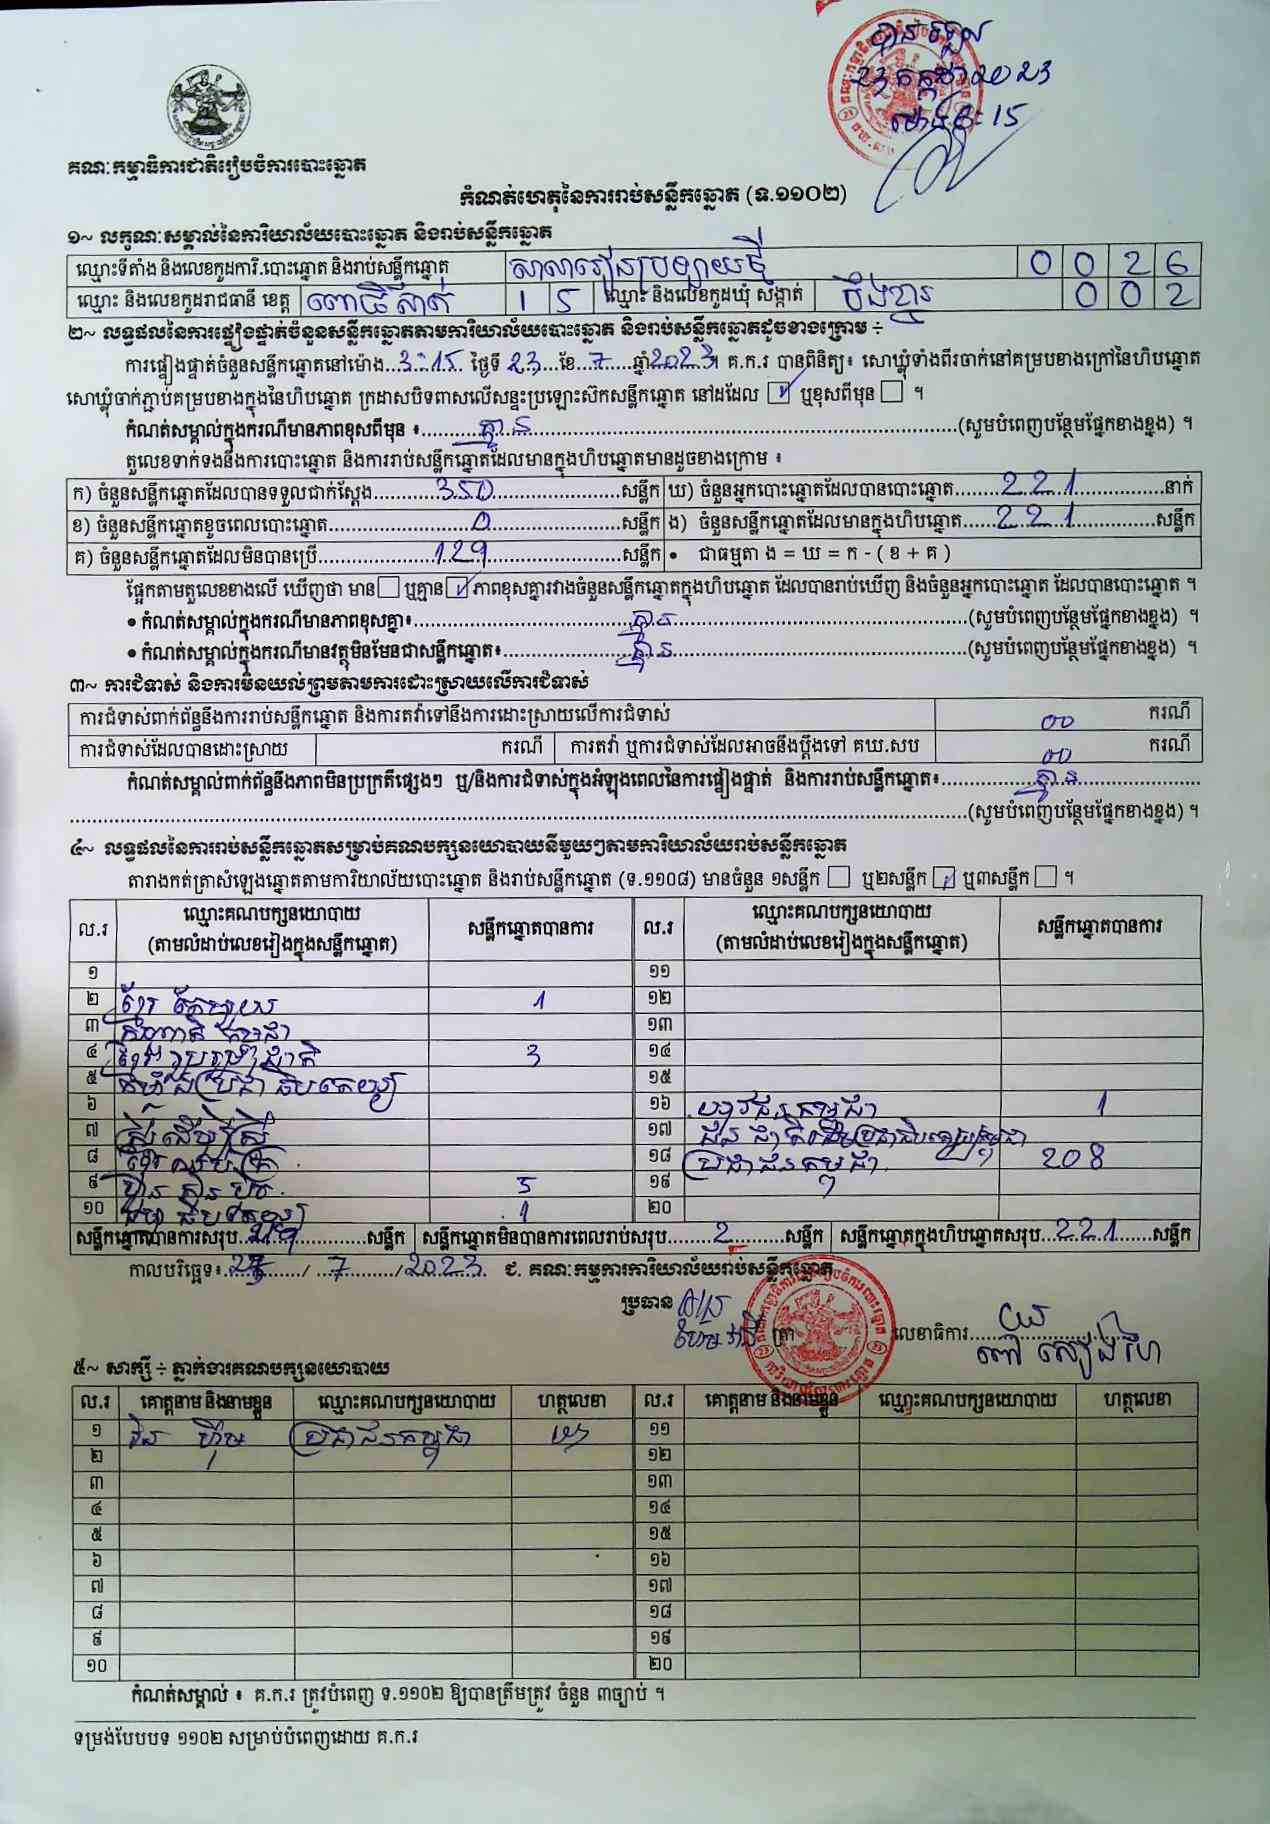 បានទទួល
23 កក្កដា 2023
ម៉ោង 15
គណៈកម្មាធិការជាតិរៀបចំការបោះឆ្នោត
កំណត់ហេតុនៃការរាប់សន្លឹកឆ្នោត (ទ.១១០២)
១~ លក្ខណៈសម្គាល់នៃការិយាល័យបោះឆ្នោត និងរាប់សន្លឹកឆ្នោត
ឈ្មោះទីតាំង និងលេខកូដការិ.បោះឆ្នោត និងរាប់សន្លឹកឆ្នោត សាលារៀនប្រឡាយថ្មី 0 0 2 6
ឈ្មោះ និងលេខកូដរាជធានី ខេត្ត ពោធិ៍សាត់ 1 5 ឈ្មោះ និងលេខកូដឃុំ សង្កាត់ បឹងខ្នារ 0 0 2
២~ លទ្ធផលនៃការផ្ទៀងផ្ទាត់ចំនួនសន្លឹកឆ្នោតតាមការិយាល័យបោះឆ្នោត និងរាប់សន្លឹកឆ្នោតដូចខាងក្រោម ÷
ការផ្ទៀងផ្ទាត់ចំនួនសន្លឹកឆ្នោតនៅម៉ោង...3:15. ថ្ងៃទី 23...ខែ..7......ឆ្នាំ2023។ គ.ក.រ បានពិនិត្យ៖ សោឃ្លុំទាំងពីរចាក់នៅគម្របខាងក្រៅនៃហិបឆ្នោត
សោឃ្លុំចាក់ភ្ជាប់គម្របខាងក្នុងនៃហិបឆ្នោត ក្រដាសបិទពាសលើសន្ទះប្រឡោះស៊កសន្លឹកឆ្នោត នៅដដែល ☑ ឬខុសពីមុន ☐ ។
កំណត់សម្គាល់ក្នុងករណីមានភាពខុសពីមុន ៖.......គ្មាន.......(សូមបំពេញបន្ថែមផ្នែកខាងខ្នង) ។
តួលេខទាក់ទងនឹងការបោះឆ្នោត និងការរាប់សន្លឹកឆ្នោតដែលមានក្នុងហិបឆ្នោតមានដូចខាងក្រោម ៖
ក) ចំនួនសន្លឹកឆ្នោតដែលបានទទួលជាក់ស្តែង.......350.......សន្លឹក ឃ) ចំនួនអ្នកបោះឆ្នោតដែលបានបោះឆ្នោត.......221.......នាក់
ខ) ចំនួនសន្លឹកឆ្នោតខូចពេលបោះឆ្នោត.......0.......សន្លឹក ង) ចំនួនសន្លឹកឆ្នោតដែលមានក្នុងហិបឆ្នោត.......221.......សន្លឹក
គ) ចំនួនសន្លឹកឆ្នោតដែលមិនបានប្រើ.......129.......សន្លឹក • ជាធម្មតា ង = ឃ = ក - ( ខ + គ )
ផ្អែកតាមតួលេខខាងលើ ឃើញថា មាន ☐ ឬគ្មាន ☑ ភាពខុសគ្នារវាងចំនួនសន្លឹកឆ្នោតក្នុងហិបឆ្នោត ដែលបានរាប់ឃើញ និងចំនួនអ្នកបោះឆ្នោត ដែលបានបោះឆ្នោត ។
• កំណត់សម្គាល់ក្នុងករណីមានភាពខុសគ្នា៖.......គ្មាន.......(សូមបំពេញបន្ថែមផ្នែកខាងខ្នង) ។
• កំណត់សម្គាល់ក្នុងករណីមានវត្ថុមិនមែនជាសន្លឹកឆ្នោត៖.......គ្មាន.......(សូមបំពេញបន្ថែមផ្នែកខាងខ្នង) ។
៣~ ការជំទាស់ និងការមិនយល់ព្រមតាមការដោះស្រាយលើការជំទាស់
ការជំទាស់ពាក់ព័ន្ធនឹងការរាប់សន្លឹកឆ្នោត និងការតវ៉ាទៅនឹងការដោះស្រាយលើការជំទាស់ 00 ករណី
ការជំទាស់ដែលបានដោះស្រាយ ករណី ការតវ៉ា ឬការជំទាស់ដែលអាចនឹងប្តឹងទៅ គឃ.សប 00 ករណី
កំណត់សម្គាល់ពាក់ព័ន្ធនឹងភាពមិនប្រក្រតីផ្សេងៗ ឬ/និងការជំទាស់ក្នុងអំឡុងពេលនៃការផ្ទៀងផ្ទាត់ និងការរាប់សន្លឹកឆ្នោត៖.......គ្មាន.......
.......(សូមបំពេញបន្ថែមផ្នែកខាងខ្នង) ។
៤~ លទ្ធផលនៃការរាប់សន្លឹកឆ្នោតសម្រាប់គណបក្សនយោបាយនីមួយៗតាមការិយាល័យរាប់សន្លឹកឆ្នោត
តារាងកត់ត្រាសំឡេងឆ្នោតតាមការិយាល័យបោះឆ្នោត និងរាប់សន្លឹកឆ្នោត (ទ.១១០៨) មានចំនួន ១សន្លឹក ☐ ឬ២សន្លឹក ☑ ឬ៣សន្លឹក ☐ ។
ល.រ ឈ្មោះគណបក្សនយោបាយ (តាមលំដាប់លេខរៀងក្នុងសន្លឹកឆ្នោត) សន្លឹកឆ្នោតបានការ ល.រ ឈ្មោះគណបក្សនយោបាយ (តាមលំដាប់លេខរៀងក្នុងសន្លឹកឆ្នោត) សន្លឹកឆ្នោតបានការ
១ ១១
២ ខ្មែរ តែមួយ 1 ១២
៣ កម្ពុជា ១៣
៤ ខ្មែរ ជាតិ 3 ១៤
៥ ប្រជាធិបតេយ្យ ១៥
៦ ១៦ យុវជនកម្ពុជា 1
៧ ស្រ្តីដើម្បីស្រ្តី ១៧ ជនជាតិដើមប្រជាធិបតេយ្យកម្ពុជា
៨ ខ្មែរ ១៨ ប្រជាជនកម្ពុជា 208
៩ ហ្វ៊ុនស៊ិនប៉ិច 5 ១៩
១០ ធម្មាធិបតេយ្យ 1 ២០
សន្លឹកឆ្នោតបានការសរុប..219.......សន្លឹក សន្លឹកឆ្នោតមិនបានការពេលរាប់សរុប.......2.......សន្លឹក សន្លឹកឆ្នោតក្នុងហិបឆ្នោតសរុប..221.......សន្លឹក
កាលបរិច្ឆេទ៖..23..../..7......./2023. ជ. គណៈកម្មការការិយាល័យរាប់សន្លឹកឆ្នោត
ប្រធាន ត្រា លេខាធិការ.......
៥~ សាក្សី ÷ ភ្នាក់ងារគណបក្សនយោបាយ
ល.រ គោត្តនាម និងនាមខ្លួន ឈ្មោះគណបក្សនយោបាយ ហត្ថលេខា ល.រ គោត្តនាម និងនាមខ្លួន ឈ្មោះគណបក្សនយោបាយ ហត្ថលេខា
១ ប្រជាជនកម្ពុជា ១១
២ ១២
៣ ១៣
៤ ១៤
៥ ១៥
៦ ១៦
៧ ១៧
៨ ១៨
៩ ១៩
១០ ២០
កំណត់សម្គាល់ ៖ គ.ក.រ ត្រូវបំពេញ ទ.១១០២ ឱ្យបានត្រឹមត្រូវ ចំនួន ៣ច្បាប់ ។
ទម្រង់បែបបទ ១១០២ សម្រាប់បំពេញដោយ គ.ក.រ